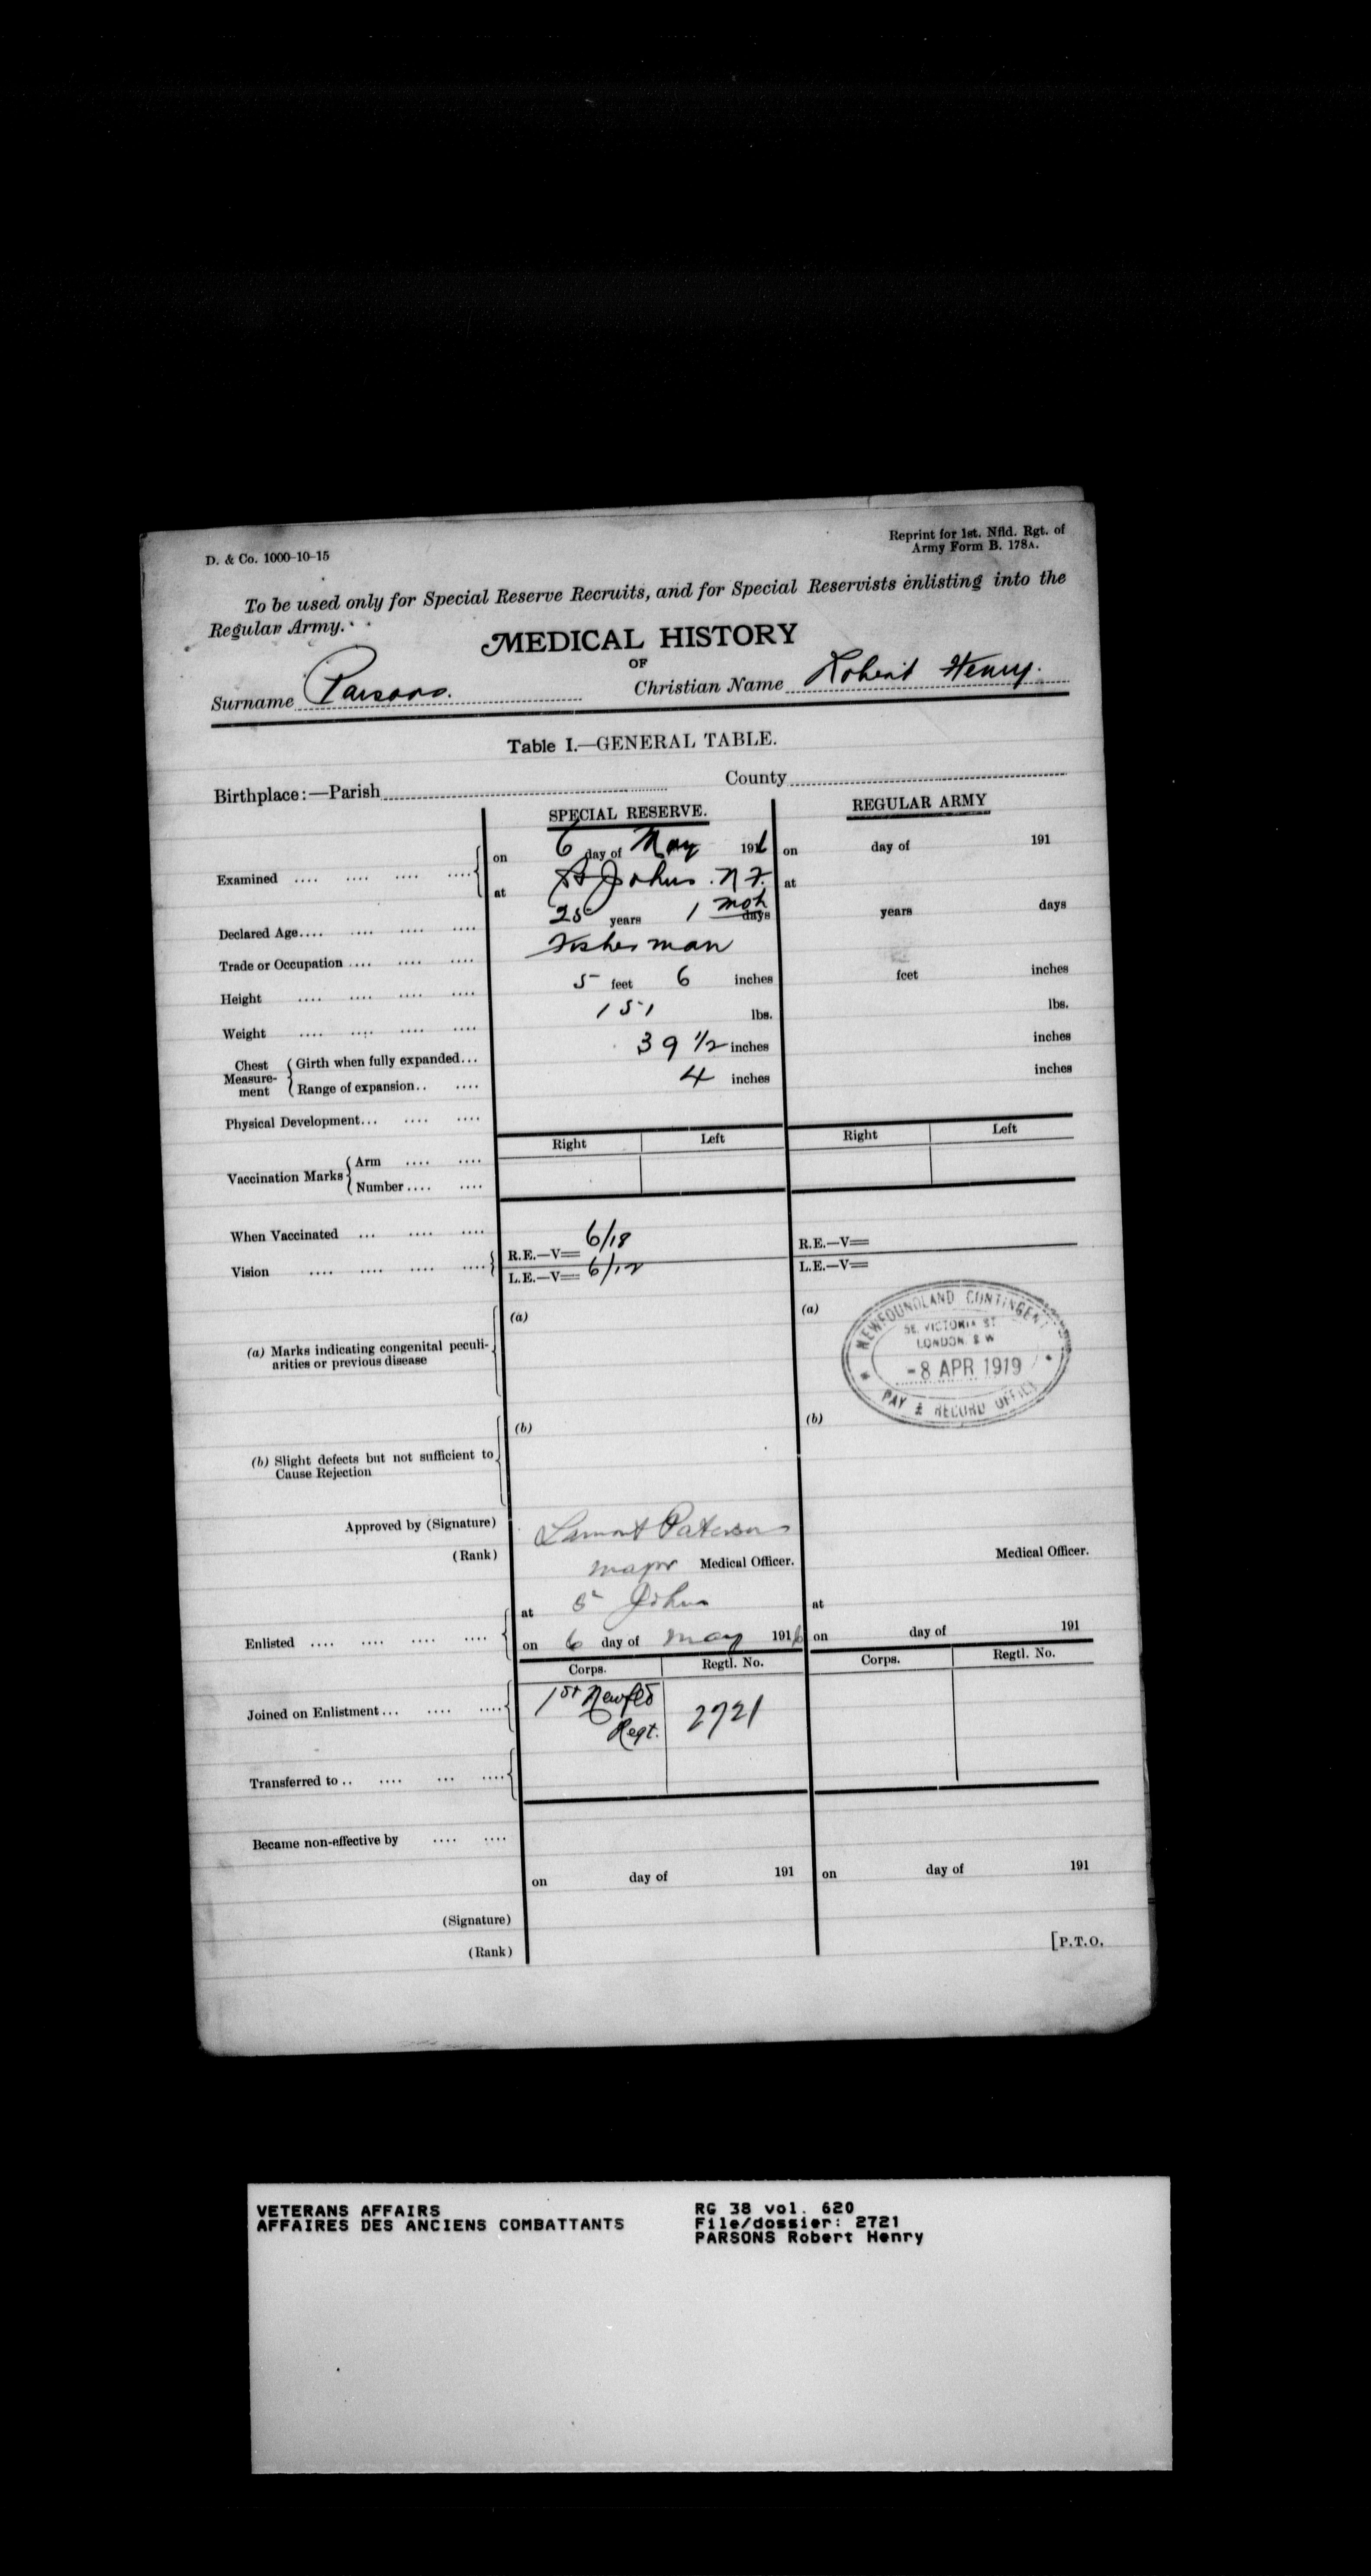 D. & Co. 1000-10-15
Reprint for 1st. Nfld. Rgt. of
Army Form B. 178A.
To be used only for Special Reserve Recruits, and for Special Reservists enlisting into the
Regular Army.
MEDICAL HISTORY
OF
Surname Parsons. Christian Name Robert Henry.
Table I.—GENERAL TABLE.
Birthplace:—Parish County
SPECIAL RESERVE. REGULAR ARMY
Examined on 6 day of May 1916 on day of 191
at St Johns. N F. at
Declared Age 25 years 1 moh days years days
Trade or Occupation Fisherman
Height 5 feet 6 inches feet inches
Weight 151 lbs. lbs.
Chest Measure-ment Girth when fully expanded 39 1/2 inches inches
Range of expansion 4 inches inches
Physical Development
Right Left Right Left
Vaccination Marks Arm
Number
When Vaccinated
Vision R.E.—V= 6/18 R.E.—V=
L.E.—V= 6/12 L.E.—V=
(a) Marks indicating congenital peculi-
arities or previous disease
(a) (a)
NEWFOUNDLAND CONTINGENT
58, VICTORIA ST
LONDON. S W
-8 APR 1919
PAY & RECORD OFFICE
(b) Slight defects but not sufficient to
Cause Rejection
(b) (b)
Approved by (Signature) Lamont Paterson
(Rank) Major Medical Officer. Medical Officer.
at St Johns at
Enlisted on 6 day of May 1916 on day of 191
Corps. Regtl. No. Corps. Regtl. No.
Joined on Enlistment 1st Newfld
Regt. 2721
Transferred to
Became non-effective by
on day of 191 on day of 191
(Signature)
(Rank)
[P.T.O.
VETERANS AFFAIRS
AFFAIRES DES ANCIENS COMBATTANTS
RG 38 vol. 620
File/dossier: 2721
PARSONS Robert Henry